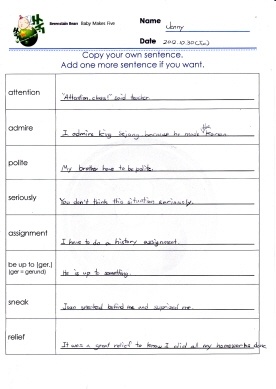 Berenstain Bears Baby Makes Five
Name Jenny
Date 2012.10.30
Copy your own sentence.
Add one more sentence if you want.
attention
"Attention, class!" said teacher.
admire
I admire king Sejong because he made the Korean.
polite
My brother have to be polite.
seriously
You don't think this situation seriously.
assignment
I have to do a history assignment.
be up to (ger.)
(ger = gerund)
He is up to something.
sneak
Joan sneaked behind me and suprized me.
relief
It was a great relief to know I did all my homeworks done.